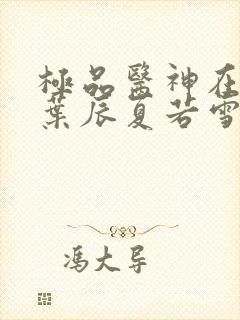 極品醫神在
葉辰夏若雪
馮大导